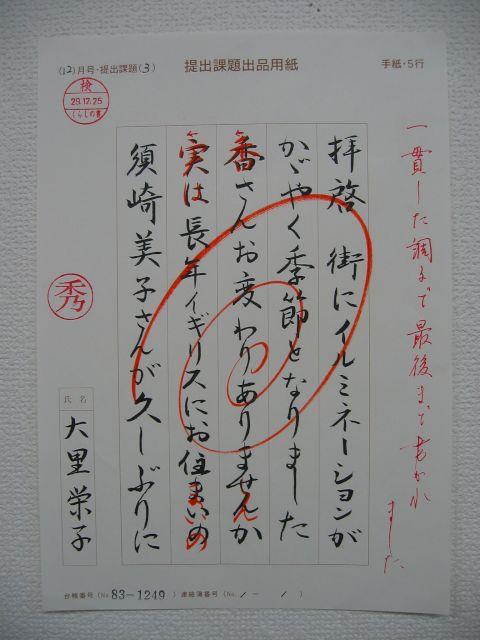 (12)月号・提出課題(3)
提出課題出品用紙
手紙・5行
検
29.12.25
くらしの書
一貫した調子で最後まで書かれ
ました
拝啓 街にイルミネーションが
かゞやく季節となりました
香さんお変わりありませんか
実は長年イギリスにお住まいの
須崎美子さんが久しぶりに
秀
氏名
大里栄子
台帳番号(No.83-1249)連絡簿番号(No. / - / )